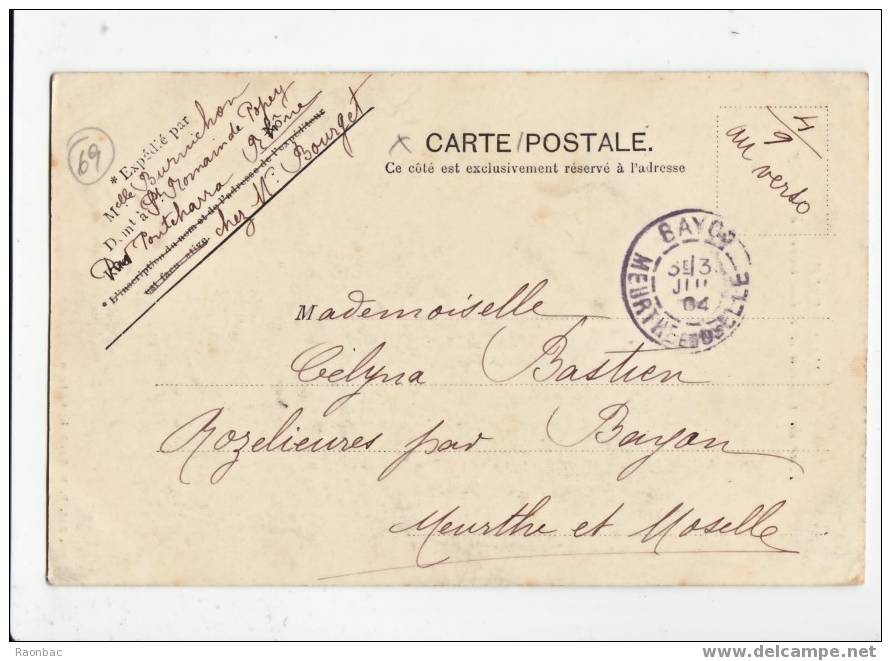 69
* Expédié par
Melle Burnichon
D.mt à St Romain de Popey
Pontcharra Rhône
chez Mr Bourget
* L'inscription du nom et de l'adresse de l'expéditeur
est facultative.
CARTE POSTALE.
Ce côté est exclusivement réservé à l'adresse
4/9
au verso
BAYON
JUI
04
MEURTHE ET MOSELLE
Mademoiselle
Célyna Bastien
Rozelieures par Bayon
Meurthe et Moselle
Raonbac
www.delcampe.net